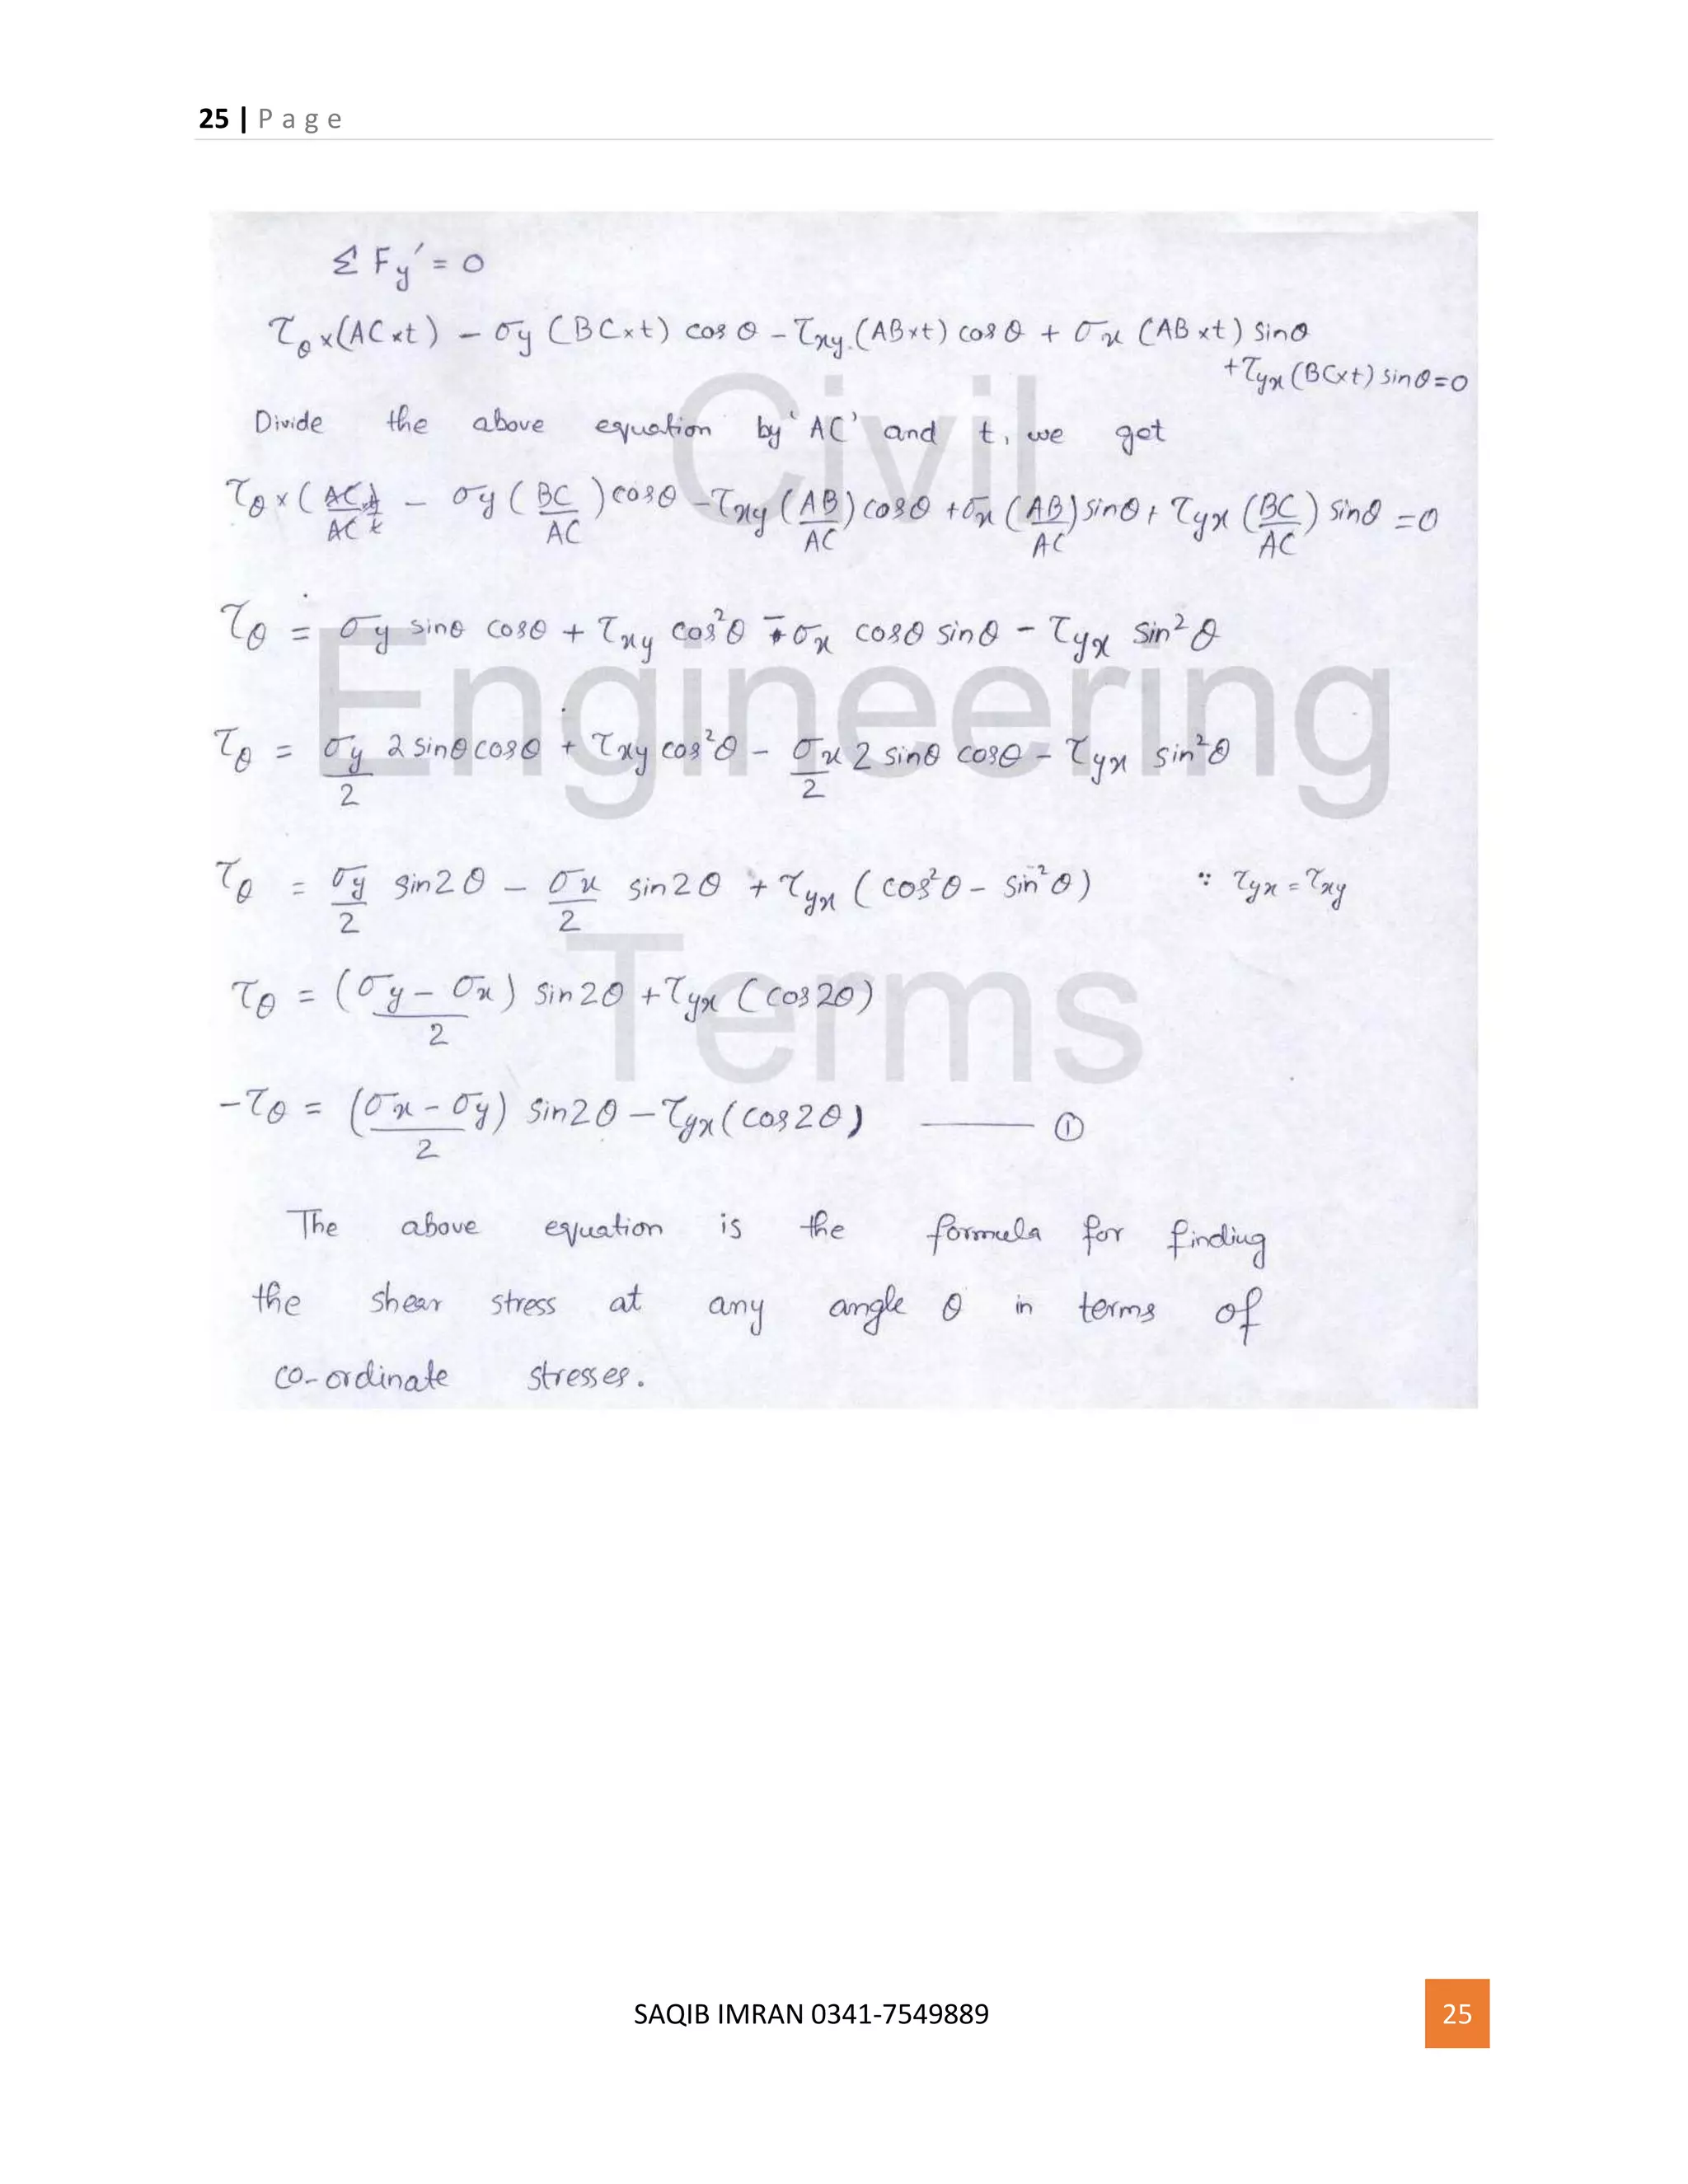 25 | P a g e
Σ Fy' = 0
τθ x(AC xt) - σy (BC xt) cos θ - τxy.(AB xt) cos θ + σx (AB xt) Sinθ
+ τyx (BC xt) sinθ = 0
Divide the above equation by 'AC' and t, we get
τθ x (AC.t/AC t) - σy (BC/AC) cosθ - τxy (AB/AC) cosθ + σx (AB/AC) sinθ + τyx (BC/AC) sinθ = 0
τθ = σy sinθ cosθ + τxy cos²θ - σx cosθ sinθ - τyx sin²θ
τθ = σy/2 2 sinθ cosθ + τxy cos²θ - σx/2 2 sinθ cosθ - τyx sin²θ
τθ = σy/2 sin2θ - σx/2 sin2θ + τyx (cos²θ - sin²θ) ∵ τyx = τxy
τθ = (σy - σx)/2 sin2θ + τyx (cos2θ)
-τθ = (σx - σy)/2 sin2θ - τyx (cos2θ) —— ①
The above equation is the formula for finding
the shear stress at any angle θ in terms of
co-ordinate stresses.
Civil
Engineering
Terms
SAQIB IMRAN 0341-7549889
25